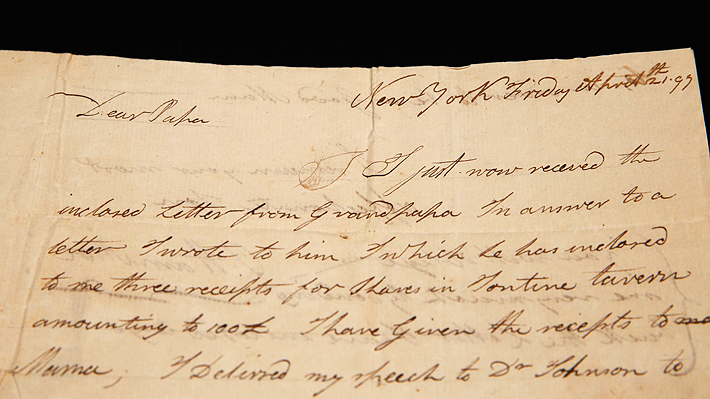 New York Friday April 21th 97
Dear Papa
I just now receved the
inclosed Letter from Grandpapa In answer to a
letter I wrote to him In which he has inclosed
to me three receipts for shares in Tontine tavern
amounting to 100£ I have Given the recepts to
Mama; I Delivred my speech to Dr Johnson to